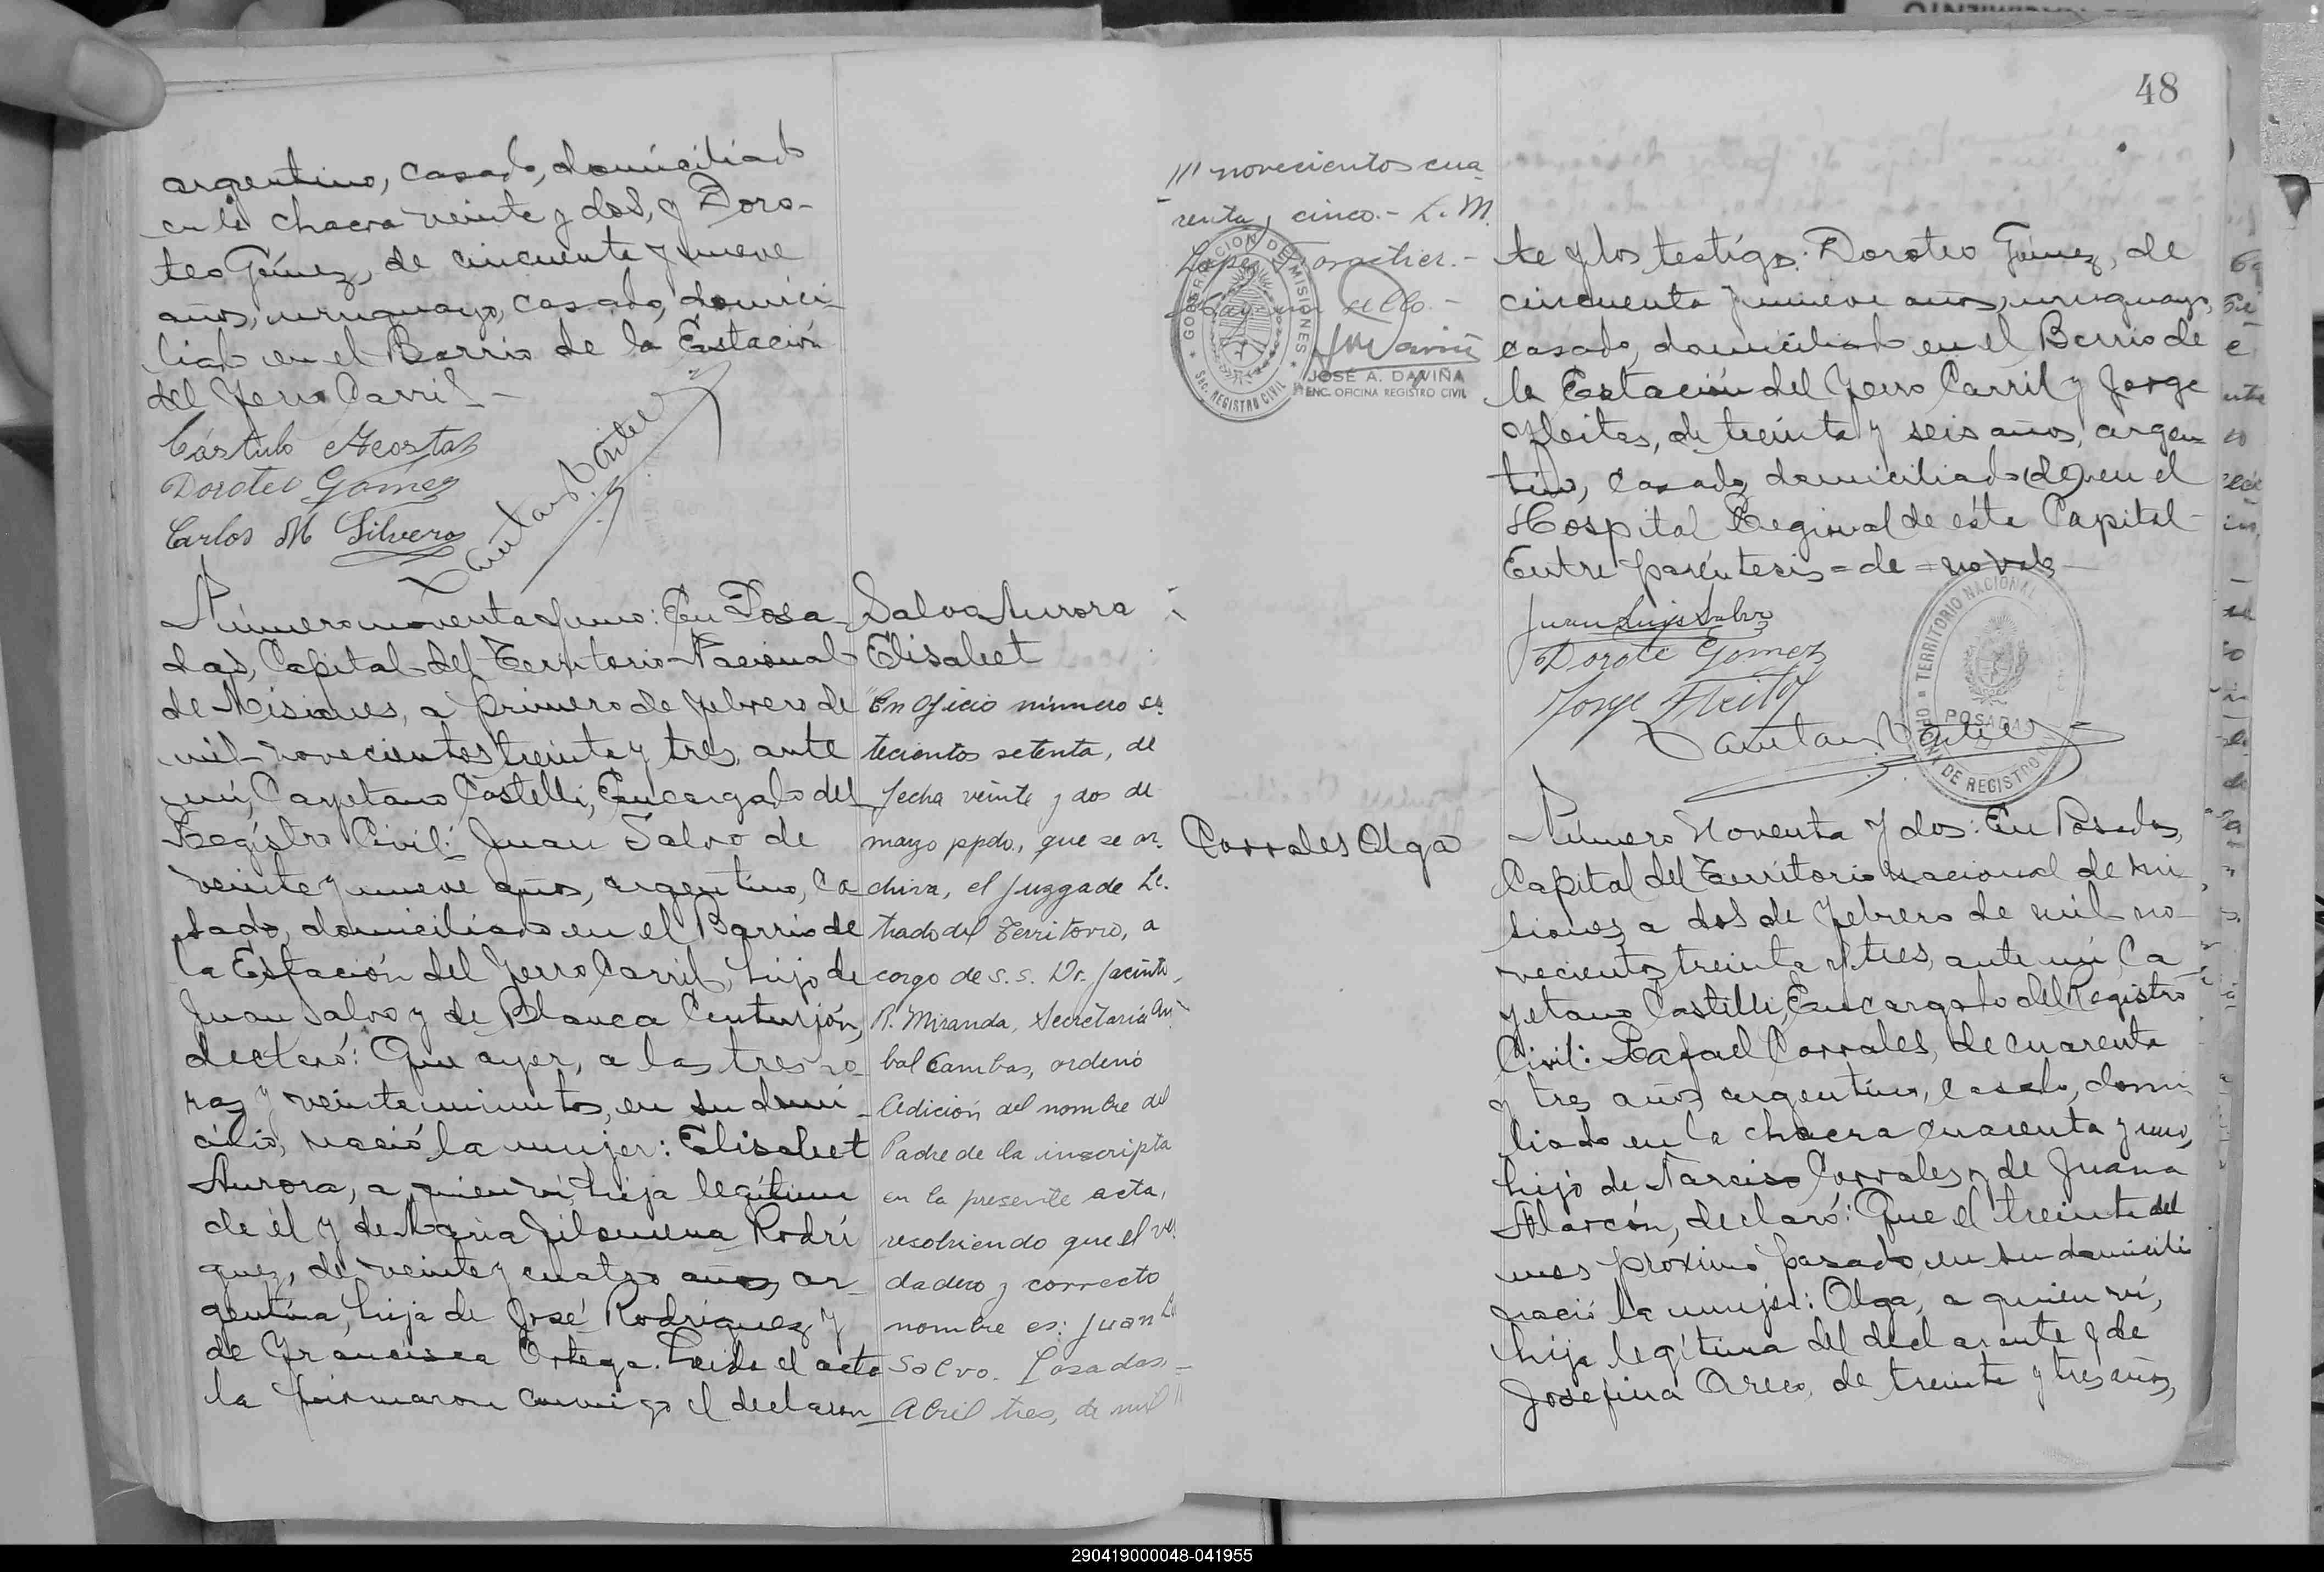 argentino, casado, domiciliado
en la chacra veinte y dos, y Doro-
teo Gómez, de cincuenta y nueve
años, uruguayo, casado, domici-
liado en el Barrio de la Estación
del Ferro Carril -
Cástulo Acosta
Doroteo Gómez
Carlos M Silvero
Número noventa y uno: En Posa-
das, Capital del Territorio Nacional
de Misiones, a primero de febrero de
mil novecientos treinta y tres, ante
mí, Cayetano Castelli, Encargado del
Registro Civil: Juan Salvo de
veinte y nueve años, argentino, ca-
sado, domiciliado en el Barrio de
la Estación del Ferro Carril, hijo de
Juan Salvo y de Blanca Centurión,
declaró: Que ayer, a las tres ho-
ras y veinte minutos, en su domi-
cilio, nació la mujer: Elisabet
Aurora, a quien ví, hija legítima
de él y de Maria Filomena Rodrí
guez, de veinte y cuatro años, ar-
gentina, hija de José Rodriguez y
de Francisca Ortega. Leida el acta
la firmaron conmigo el declaran-
Salvo Aurora
Elisabet
"En Oficio número se-
tecientos setenta, de
fecha veinte y dos de
mayo ppdo, que se ar-
chiva, el Juzgado Le-
trado del Territorio, a
cargo de S. S. Dr. Jacinto
R. Miranda, Secretaría Aní
bal Cambas, ordenó
Adición del nombre del
Padre de la inscripta
en la presente acta,
resolviendo que el ver
dadero y correcto
nombre es: Juan Lu
Salvo. Posadas,
Abril tres, de mil //
48
/// novecientos cua-
renta y cinco.- L. M.
Hay un sello.-
GOBERNACION DE MISIONES
SEC. REGISTRO CIVIL
JOSÉ A. DAVIÑA
ENC. OFICINA REGISTRO CIVIL
te y los testigos: Doroteo Gómez, de
cincuenta y nueve años, uruguayo,
casado, domiciliado en el Barrio de
la Estación del Ferro Carril y Jorge
Fleitas, de treinta y seis años, argen-
tino, casado, domiciliado (de) en el
Hospital Regional de ésta Capital-
Entre paréntesis = de = no vale -
Juan Luis Salvo
Doroteo Gomez
Jorge Fleitas
TERRITORIO NACIONAL
POSADAS
Corrales Olga
Número Noventa y dos: En Posadas,
Capital del Territorio Nacional de Mi
siones, a dos de febrero de mil no-
vecientos treinta y tres, ante mí, Ca
yetano Castelli, Encargado del Registro
Civil: Rafael Corrales, de cuarenta
y tres años, argentino, casado, domi
liado en la chacra cuarenta y uno,
hijo de Narciso Corrales y de Juana
Alarcón, declaró: Que el treinta del
mes próximo pasado, en su domicili
nació la mujer: Olga, a quien ví,
hija legítima del declarante y de
Josefina Areco, de treinta y tres años,
290419000048-041955